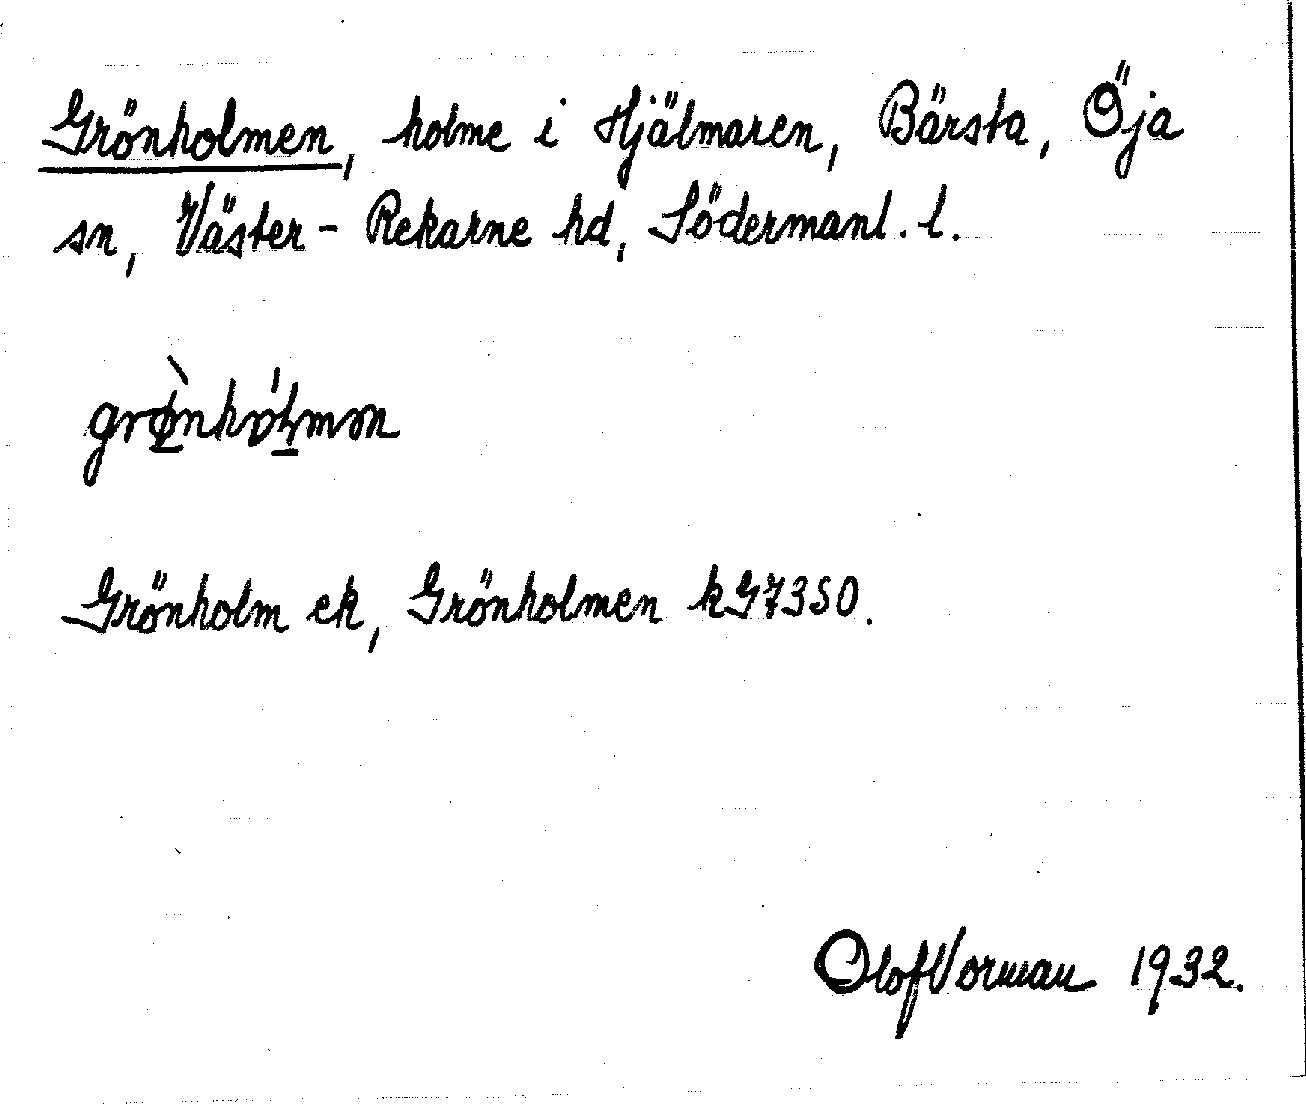 Grönholmen, holme i Hjälmaren, Bärsta, Öja
sn, Väster-Rekarne hd, Södermanl. l.
Grönholm ek, Grönholmen kG7350.
Olof Vorman 1932.